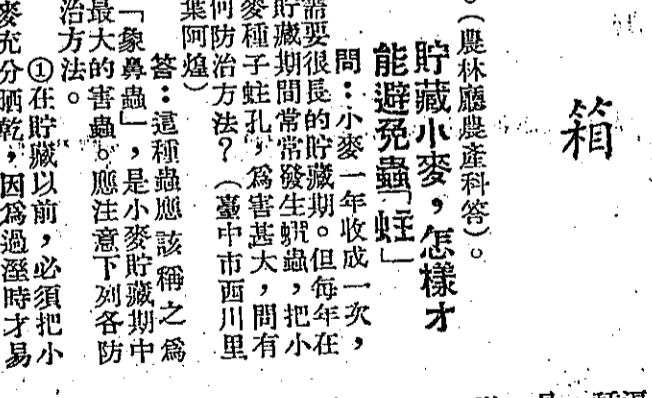 箱
。（農林廳農產科答）。
貯藏小麥，怎樣才
能避免蟲「蛀」
問：小麥一年收成一次，
需要很長的貯藏期。但每年在
貯藏期間常常發生蜆蟲，把小
麥種子蛀孔，爲害甚大，問有
何防治方法？（臺中市西川里
葉阿煌）
答：這種蟲應該稱之爲
「象鼻蟲」，是小麥貯藏期中
最大的害蟲。應注意下列各防
治方法。
①在貯藏以前，必須把小
麥充分晒乾，因爲過溼時才易